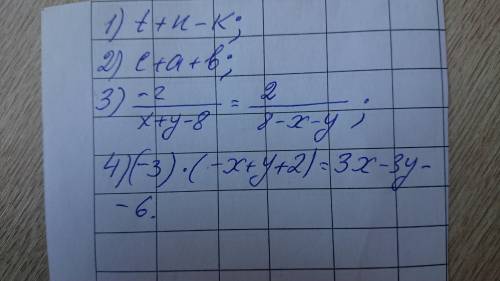 1) t+n-k;
2) c+a+b;
3) -2/(x+y-8) = 2/(8-x-y);
4) (-3)·(-x+y+2)=3x-3y-
-6.